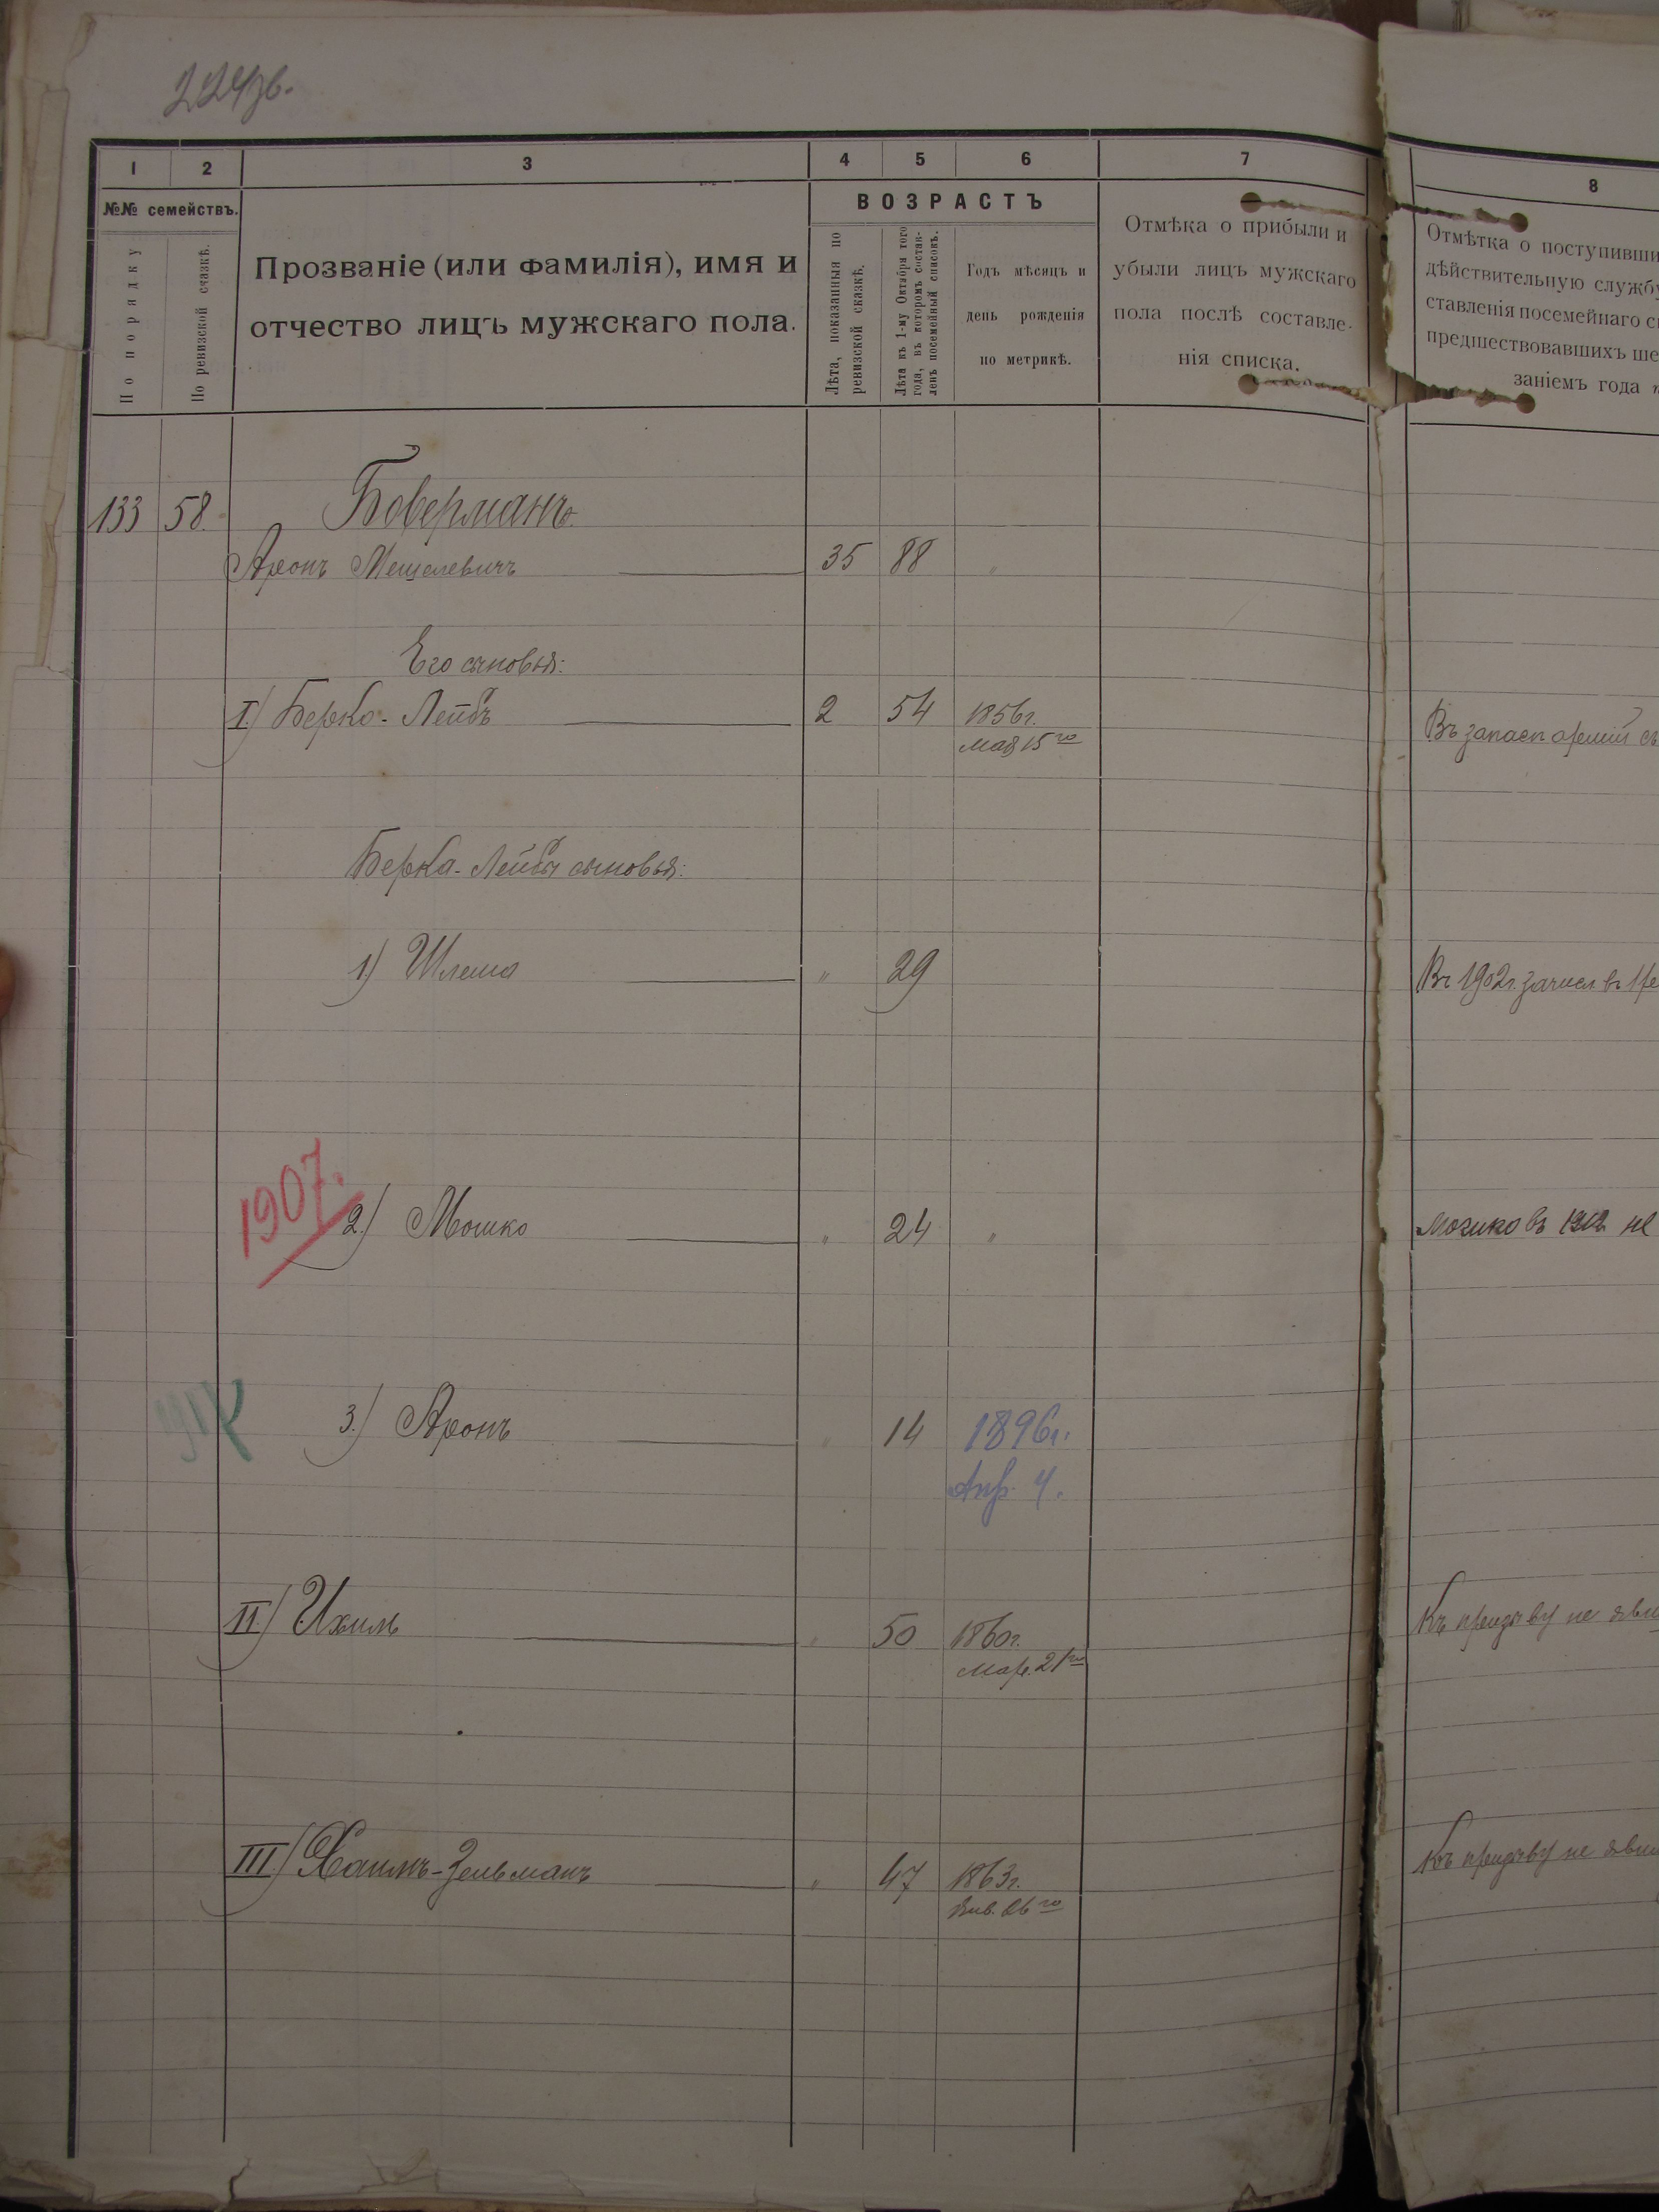 224об.
1 2 3 4 5 6 7 8
№№ семействъ.
По порядку
По ревизской сказкѣ.
Прозваніе (или фамилія), имя и
отчество лицъ мужскаго пола.
ВОЗРАСТЪ
Лѣта, показанныя по
ревизской сказкѣ.
Лѣта къ 1-му Октября того
года, въ которомъ состав-
ленъ посемейный списокъ.
Годъ мѣсяцъ и
день рожденія
по метрикѣ.
Отмѣка о прибыли и
убыли лицъ мужскаго
пола послѣ составле-
нія списка.
Отмѣтка о поступивши
дѣйствительную службу
ставленія посемейнаго с
предшествовавшихъ ше
заніемъ года
133 58 Боверманъ.
Аронъ Мешелевичъ 35 88 "
Его сыновья:
I.) Берко-Лейбъ 2 54 1856г.
Мая 15го
Въ запасѣ арміи съ
Берка-Лейбы сыновья:
1.) Шлема " 29
Въ 1902г. зачисл. въ
1907.
2.) Мошко " 24 "
Мошко въ 1912 не
3.) Аронъ " 14 1896г.
Апр. 4.
II.) Ихиль " 50 1860г.
Мар. 21го
Къ призыву не яви
III.) Хаимъ-Зельманъ " 47 1863г.
Янв. 26го
Къ призыву не яви